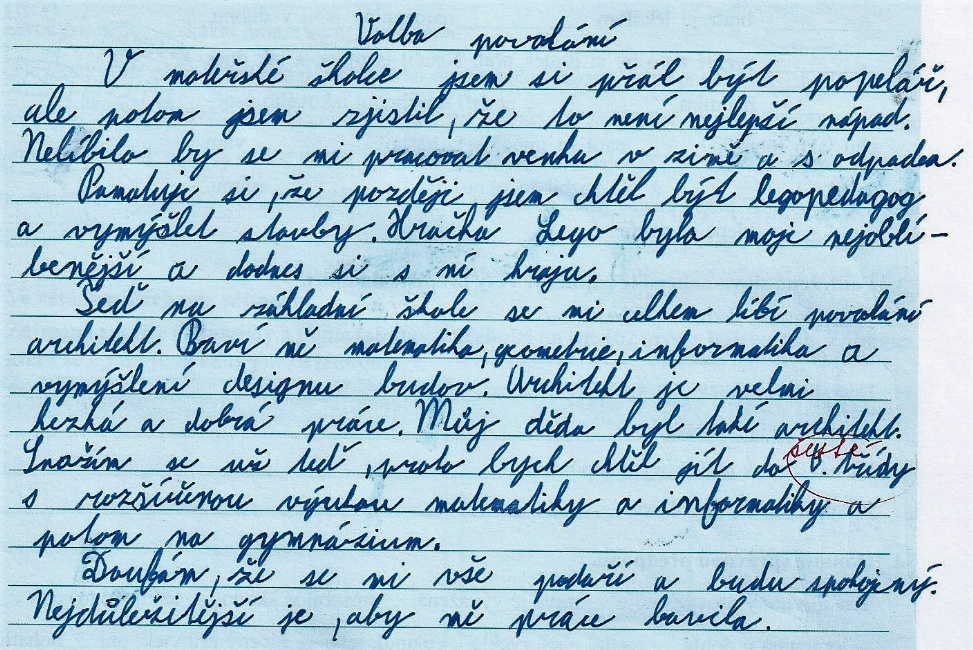 Volba povolání
V mateřské školce jsem si přál být popelář,
ale potom jsem zjistil, že to není nejlepší nápad.
Nelíbilo by se mi pracovat venku v zimě a s odpadem.
Pamatuji si, že později jsem chtěl být legopedagog
a vymýšlet stavby. Hračka Lego byla moje nejoblí-
benější a dodnes si s ní hraju.
Teď na základní škole se mi celkem líbí povolání
architekt. Baví mě matematika, geometrie, informatika a
vymýšlení designu budov. Architekt je velmi
hezká a dobrá práce. Můj děda byl také architekt.
Snažím se už teď, proto bych chtěl jít do 6. třídy
šesté
s rozšířenou výukou matematiky a informatiky a
potom na gymnázium.
Doufám, že se mi vše podaří a budu spokojený.
Nejdůležitější je, aby mě práce bavila.